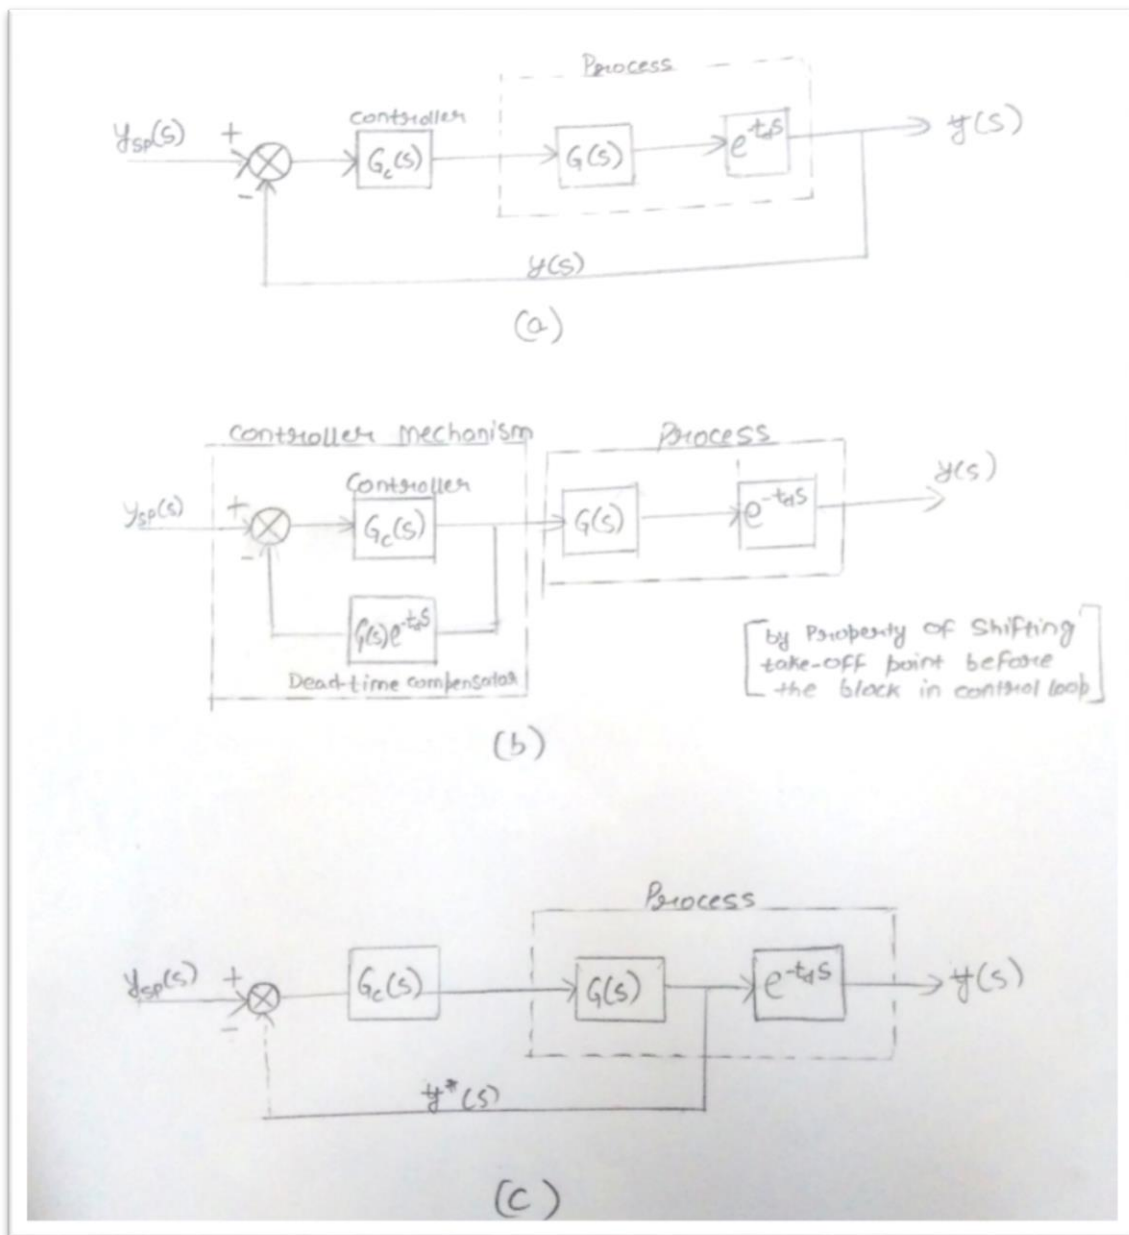 Process
Controller
y_sp(s) + G_c(s) G(s) e^-t_d s y(s)
-
y(s)
(a)
Controller Mechanism Process
Controller y(s)
y_sp(s) + G_c(s) G(s) e^-t_d s
-
G(s)e^-t_d s
Dead-time compensator
[by Property of Shifting
take-off point before
the block in control loop]
(b)
Process
y_sp(s) + G_c(s) G(s) e^-t_d s y(s)
-
y*(s)
(c)